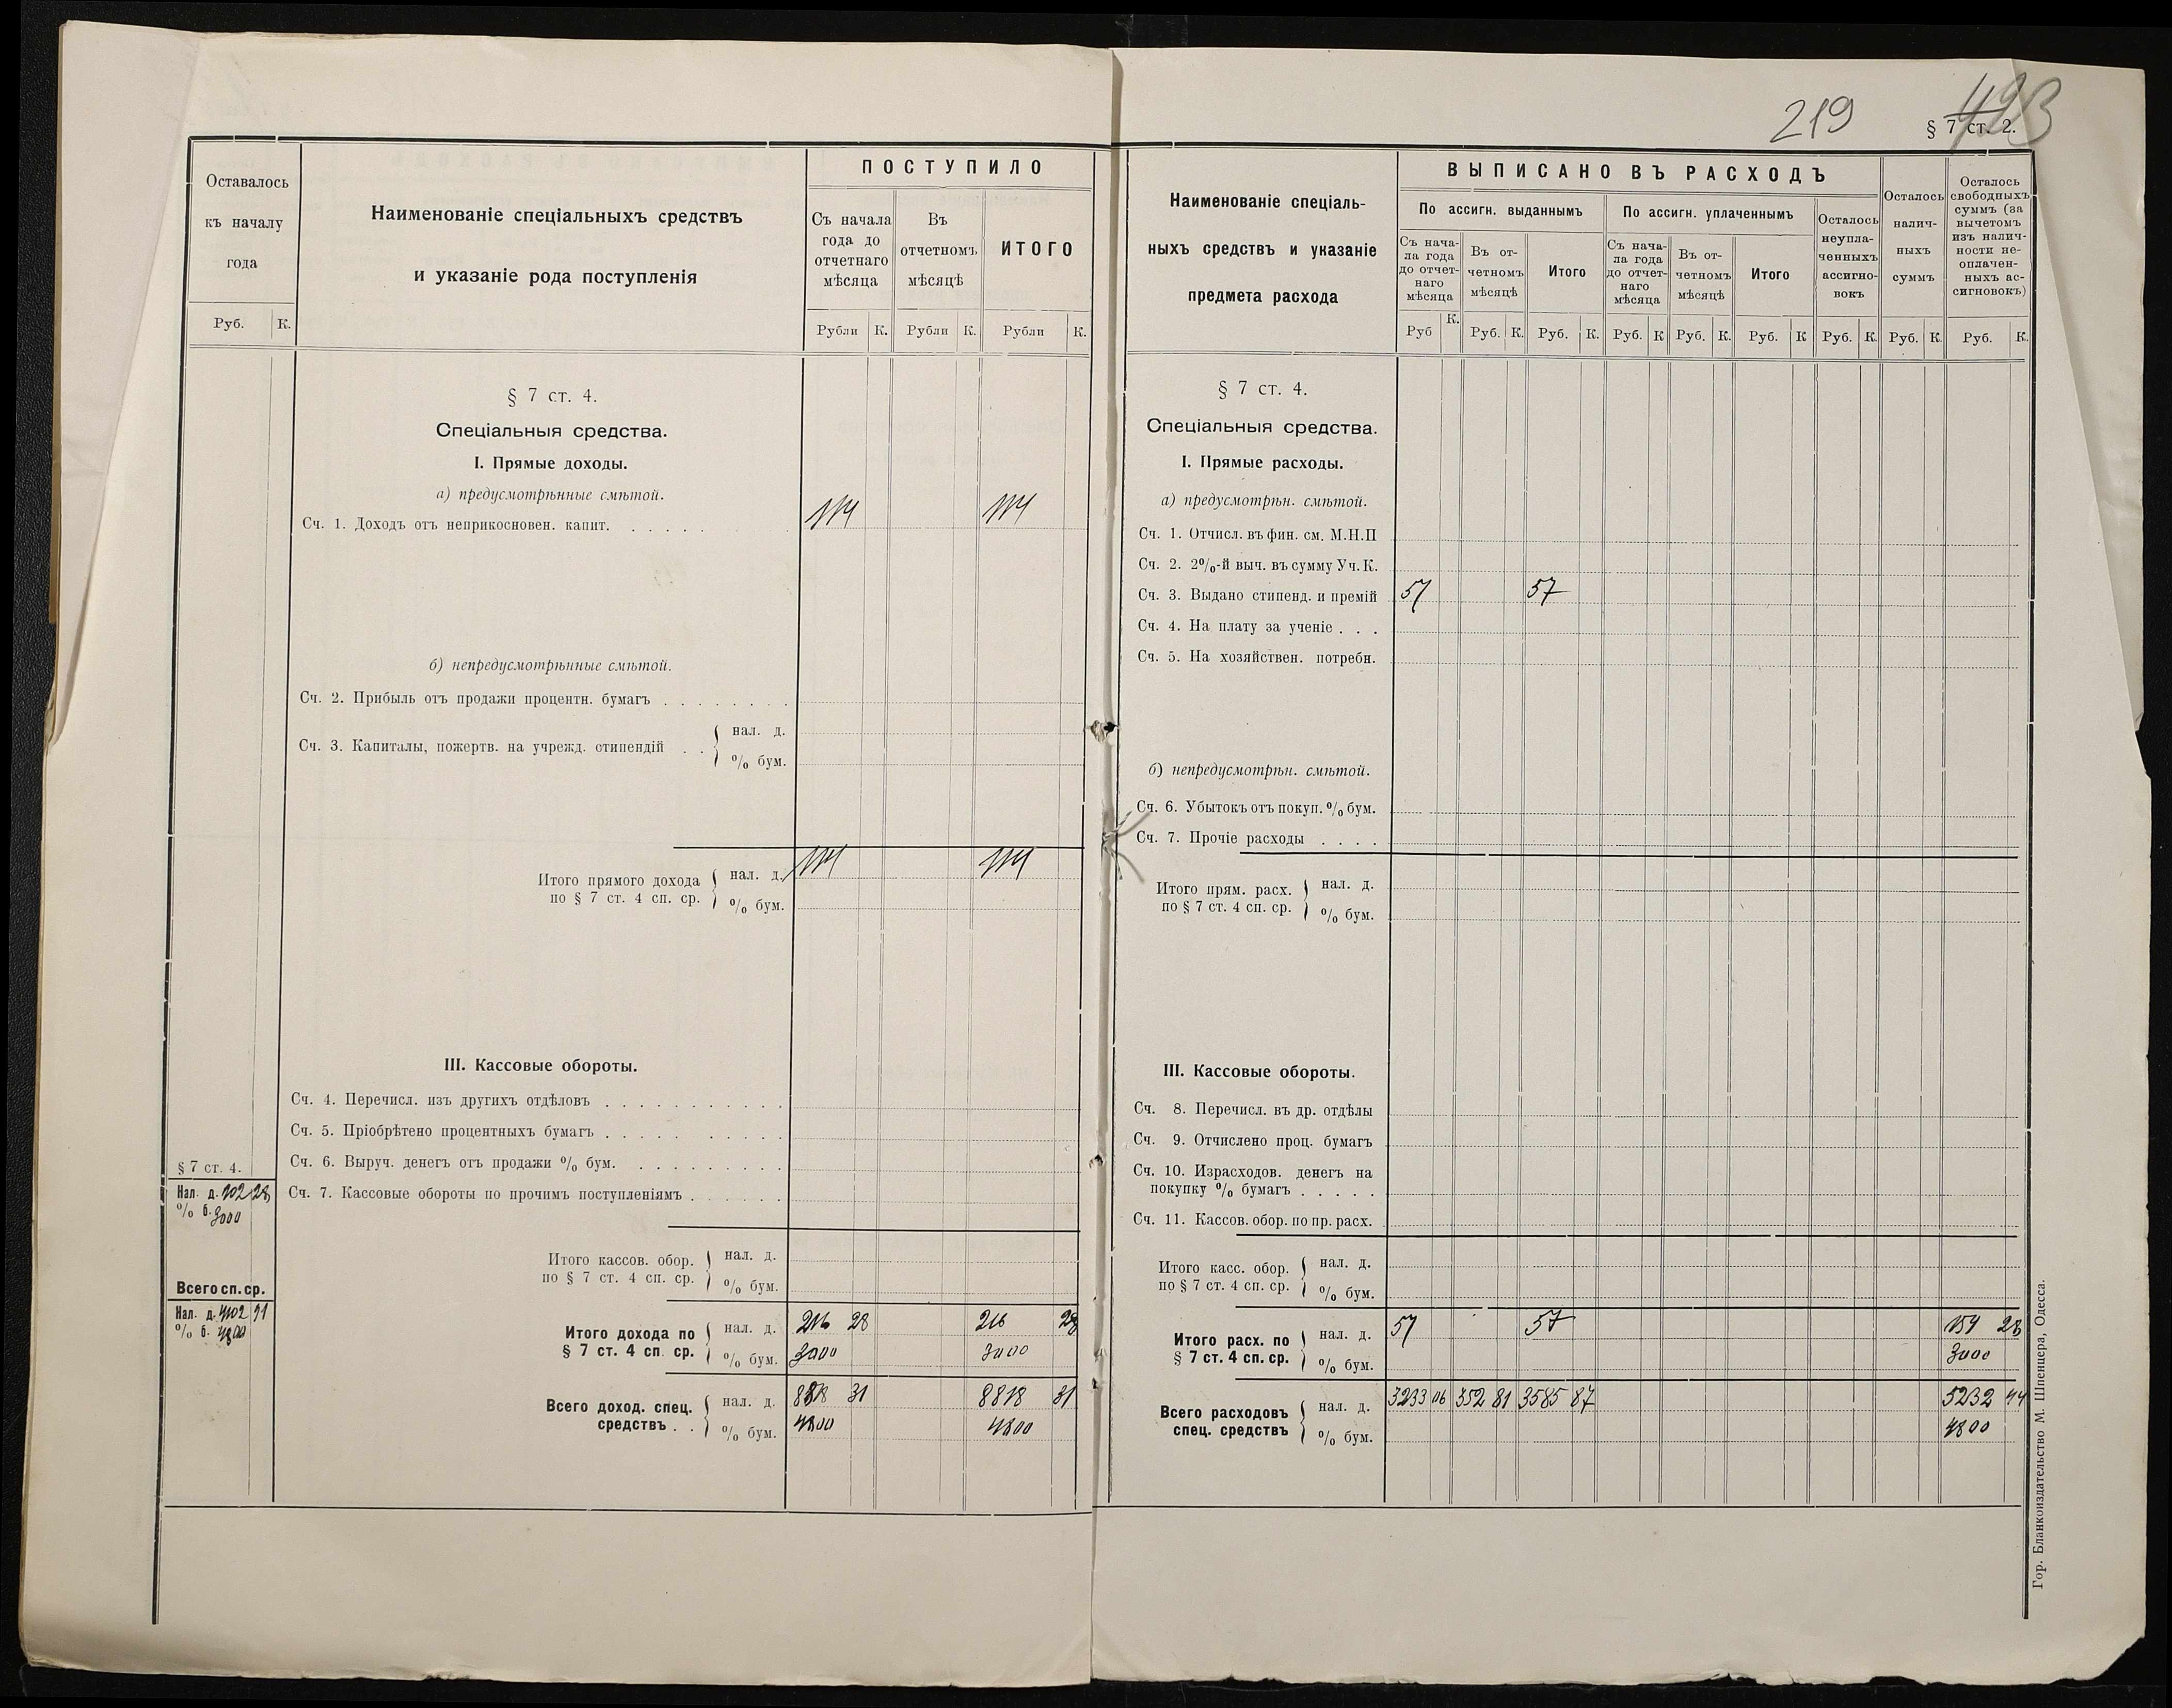 219
§ 7 ст. 2.
Оставалось
къ началу
года
Руб. К.
Наименованіе спеціальныхъ средствъ
и указаніе рода поступленія
ПОСТУПИЛО
Съ начала
года до
отчетнаго
мѣсяца
Въ
отчетномъ
мѣсяцѣ
ИТОГО
Рубли К. Рубли К. Рубли К.
§ 7 ст. 4.
Спеціальныя средства.
I. Прямые доходы.
а) предусмотрѣнные смѣтой.
Сч. 1. Доходъ отъ неприкосновен. капит. . . . . . 114 114
б) непредусмотрѣнные смѣтой.
Сч. 2. Прибыль отъ продажи процентн. бумагъ . . . . . . . .
Сч. 3. Капиталы, пожертв. на учрежд. стипендій . . нал. д.
% бум.
Итого прямого дохода нал. д. 114 114
по § 7 ст. 4 сп. ср. % бум.
III. Кассовые обороты.
Сч. 4. Перечисл. изъ другихъ отдѣловъ . . . . . . . . . . .
Сч. 5. Пріобрѣтено процентныхъ бумагъ . . . . . . . . .
Сч. 6. Выруч. денегъ отъ продажи % бум. . . . . . . . . .
Сч. 7. Кассовые обороты по прочимъ поступленіямъ . . . . . .
§ 7 ст. 4.
Нал. д. 102 28
% б. 3000
Всего сп. ср.
Нал. д. 4102 91
% б. 4800
Итого кассов. обор. нал. д.
по § 7 ст. 4 сп. ср. % бум.
Итого дохода по нал. д. 216 28 216 28
§ 7 ст. 4 сп. ср. % бум. 3000 3000
Всего доход. спец. нал. д. 8818 31 8818 31
средствъ . . % бум. 4800 4800
Наименованіе спеціаль-
ныхъ средствъ и указаніе
предмета расхода
ВЫПИСАНО ВЪ РАСХОДЪ
По ассигн. выданнымъ
По ассигн. уплаченнымъ
Съ нача-
ла года
до отчет-
наго
мѣсяца
Въ от-
четномъ
мѣсяцѣ
Итого
Съ нача-
ла года
до отчет-
наго
мѣсяца
Въ от-
четномъ
мѣсяцѣ
Итого
Осталось
неупла-
ченныхъ
ассигно-
вокъ
Осталось
налич-
ныхъ
суммъ
Осталось
свободныхъ
суммъ (за
вычетомъ
изъ налич-
ности не-
оплачен-
ныхъ ас-
сигновокъ)
Руб К. Руб. К. Руб. К. Руб. К Руб. К. Руб. К Руб. К. Руб. К. Руб. К.
§ 7 ст. 4.
Спеціальныя средства.
I. Прямые расходы.
а) предусмотрѣн. смѣтой.
Сч. 1. Отчисл. въ фин. см. М.Н.П
Сч. 2. 2%-й выч. въ сумму Уч. К.
Сч. 3. Выдано стипенд. и премій 57 57
Сч. 4. На плату за ученіе . . .
Сч. 5. На хозяйствен. потребн.
б) непредусмотрѣн. смѣтой.
Сч. 6. Убытокъ отъ покуп. % бум.
Сч. 7. Прочіе расходы . . . .
Итого прям. расх. нал. д.
по § 7 ст. 4 сп. ср. % бум.
III. Кассовые обороты.
Сч. 8. Перечисл. въ др. отдѣлы
Сч. 9. Отчислено проц. бумагъ
Сч. 10. Израсходов. денегъ на
покупку % бумагъ . . . . .
Сч. 11. Кассов. обор. по пр. расх.
Итого касс. обор. нал. д.
по § 7 ст. 4 сп. ср. % бум.
Итого расх. по нал. д. 57 57 159 28
§ 7 ст. 4 сп. ср. % бум. 3000
Всего расходовъ нал. д. 3233 06 352 81 3585 87 5232 44
спец. средствъ % бум. 4800
Гор. Бланкоиздательство М. Шпенцера, Одесса.